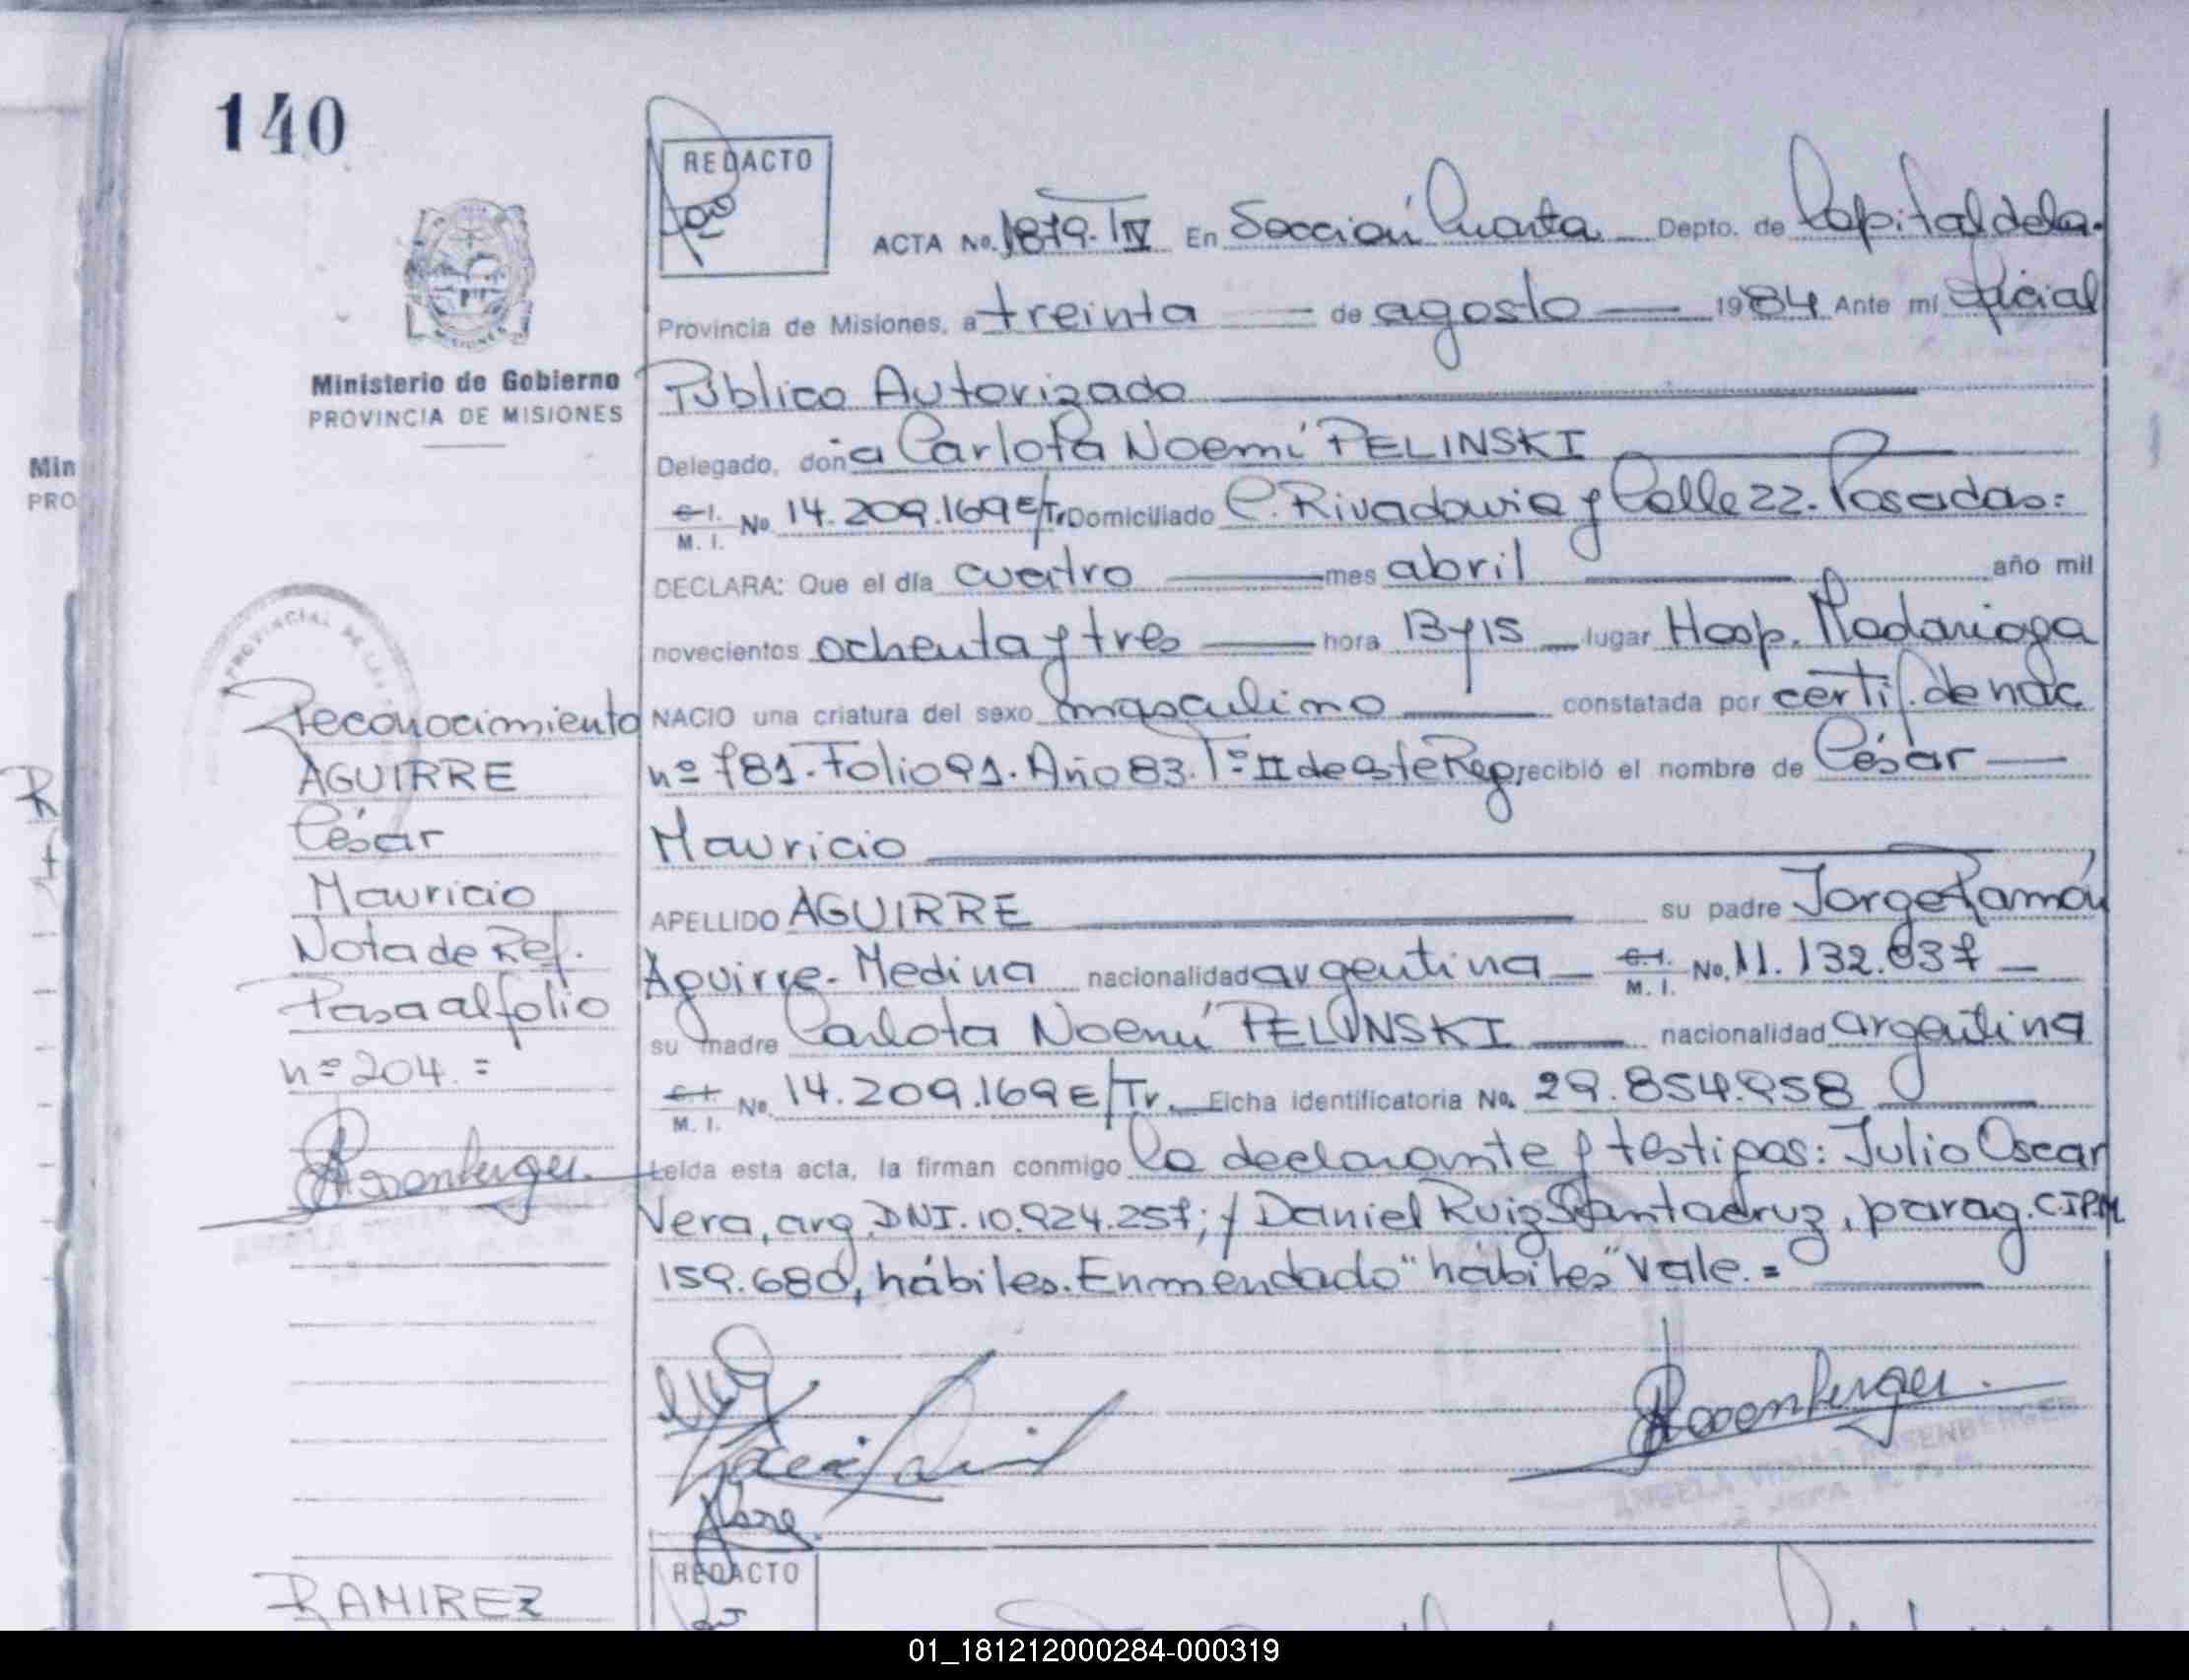 140
REDACTO
ACTA No. 1879-IV En Sección Cuarta Depto. de Capital dela
Provincia de Misiones, a treinta de agosto 1984 Ante mí Oficial
Ministerio de Gobierno
PROVINCIA DE MISIONES
Público Autorizado
Delegado, doña Carlota Noemí PELINSKI
Min
PRO
C.I. M. I. No. 14.209.169 E/Tr Domiciliado C. Rivadavia y Calle 22. Posadas=
DECLARA: Que el día cuatro mes abril año mil
novecientos ochenta y tres hora 13 y 15 lugar Hosp. Madariaga
NACIO una criatura del sexo masculino constatada por certif. de nac
nº 781. Folio 91. Año 83. Tº II de este Reg, recibió el nombre de César
Mauricio
APELLIDO AGUIRRE su padre Jorge Ramón
Aguirre - Medina nacionalidad argentina C.I. M. I. No. 11.132.637
su madre Carlota Noemí PELINSKI nacionalidad argentina
C.I. M. I. No. 14.209.169 E/Tr. Ficha identificatoria No. 29.854.958
Leída esta acta, la firman conmigo la declarante y testigos: Julio Oscar
Vera, arg. DNI. 10.924.257; y Daniel Ruiz Santacruz, parag. C.I.P.M
159.680, hábiles. Enmendado "hábiles" Vale.=
Reconocimiento
AGUIRRE
César
Mauricio
Nota de Ref.
Pasa al folio
nº 204.=
Rosenberger.
Rosenberger.
ROSENBERGER
REDACTO
RAMIREZ
01_181212000284-000319